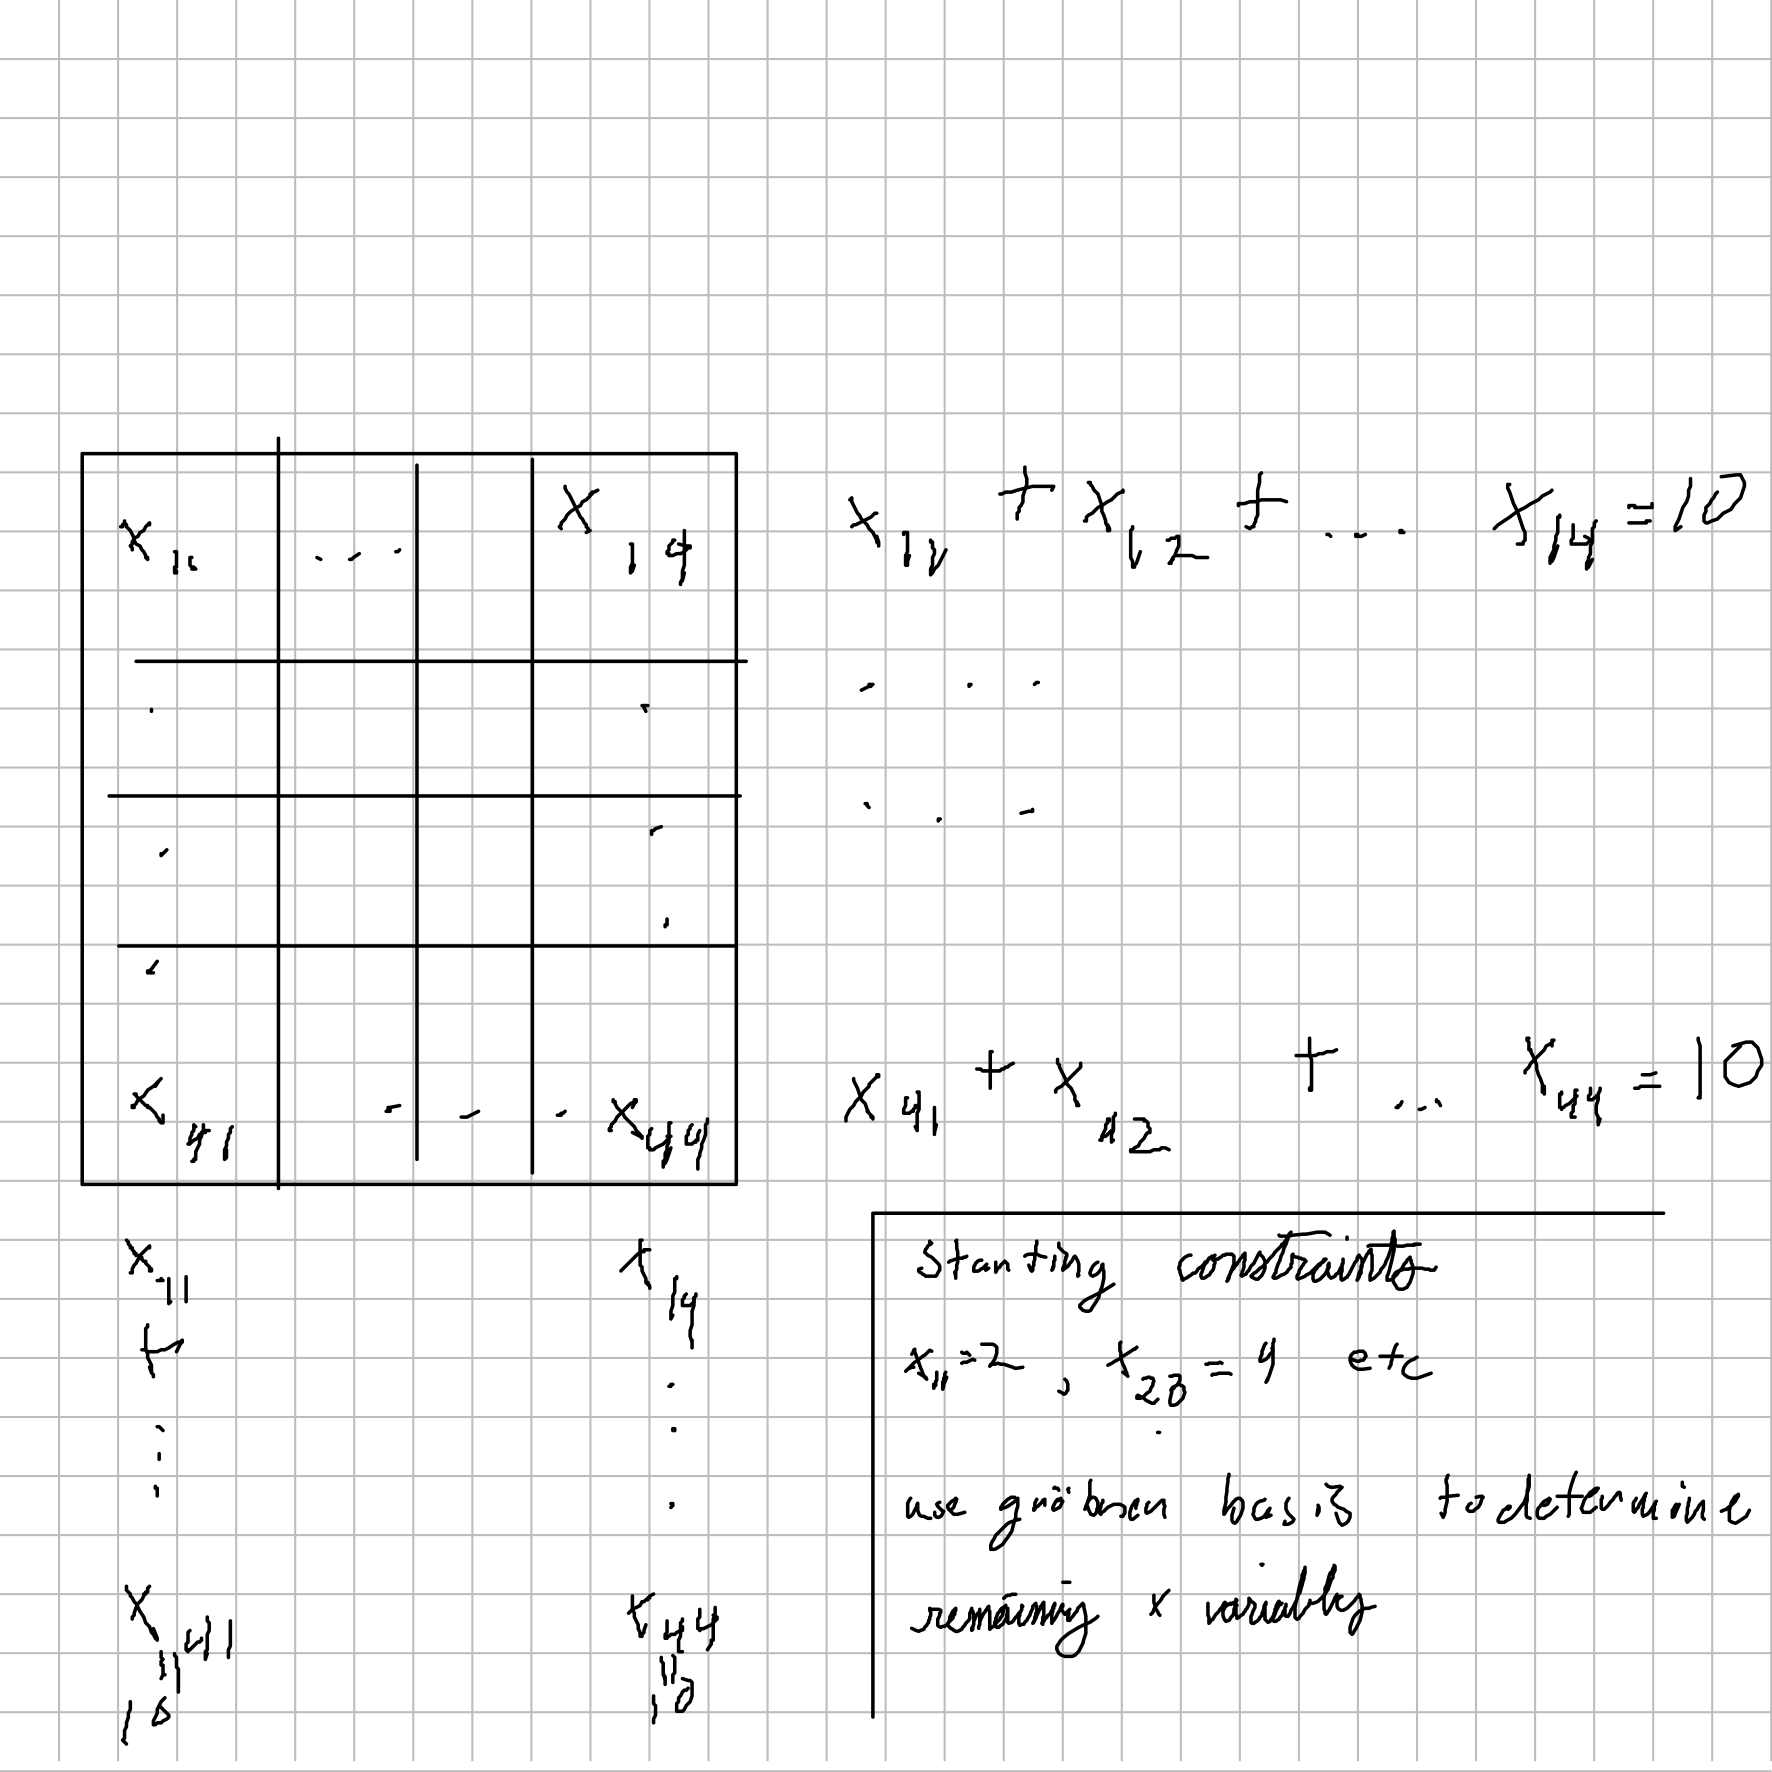 x₁₁ ... x₁₄
x₄₁ - - - x₄₄
x₁₁ + x₁₂ + ... x₁₄ = 10
. . .
. . .
x₄₁ + x₄₂ + ... x₄₄ = 10
x₁₁ x₁₄
+ .
⋮ ⋮
x₄₁ x₄₄
= =
10 10
Starting constraints
x₁₁ = 2 , x₂₃ = 4 etc
use gröbner basis to determine
remaining x variables